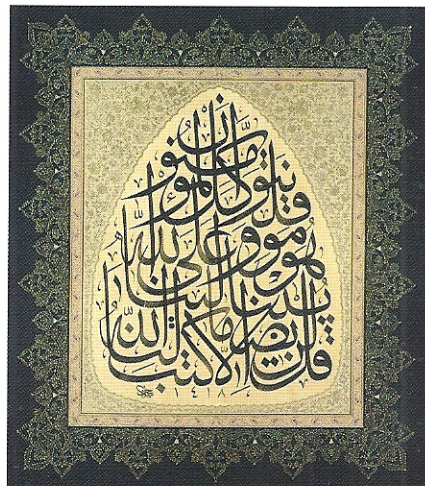 قل لن يصيبنا إلا ما كتب الله لنا
هو مولانا وعلى الله
فليتوكل المؤمنون
١٤١٨